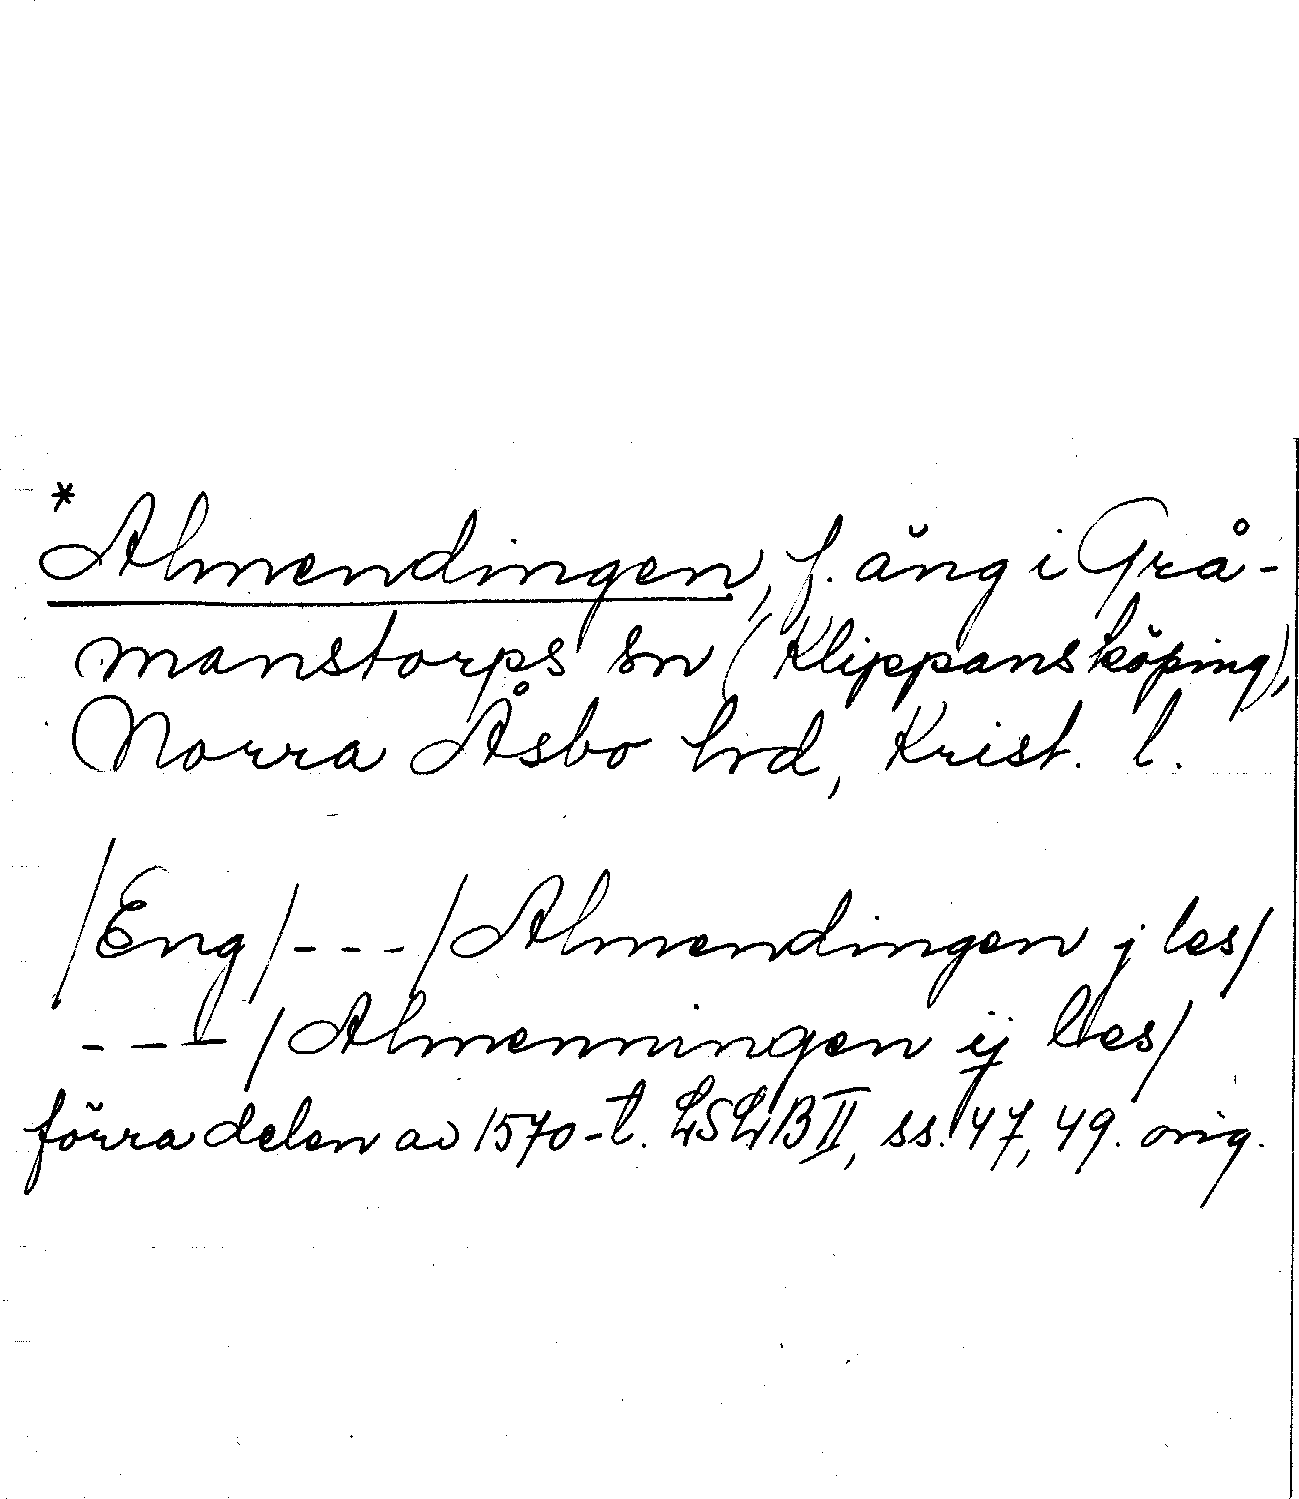 *Almendingen, f. äng i Grå-
manstorps sn (Klippans köping),
Norra Åsbo hd, Krist. l.
/Eng/---/Almendingen j les/
---/Almenningen ij les/
förra delen av 1570-t. LSLB II, ss. 47, 49. orig.